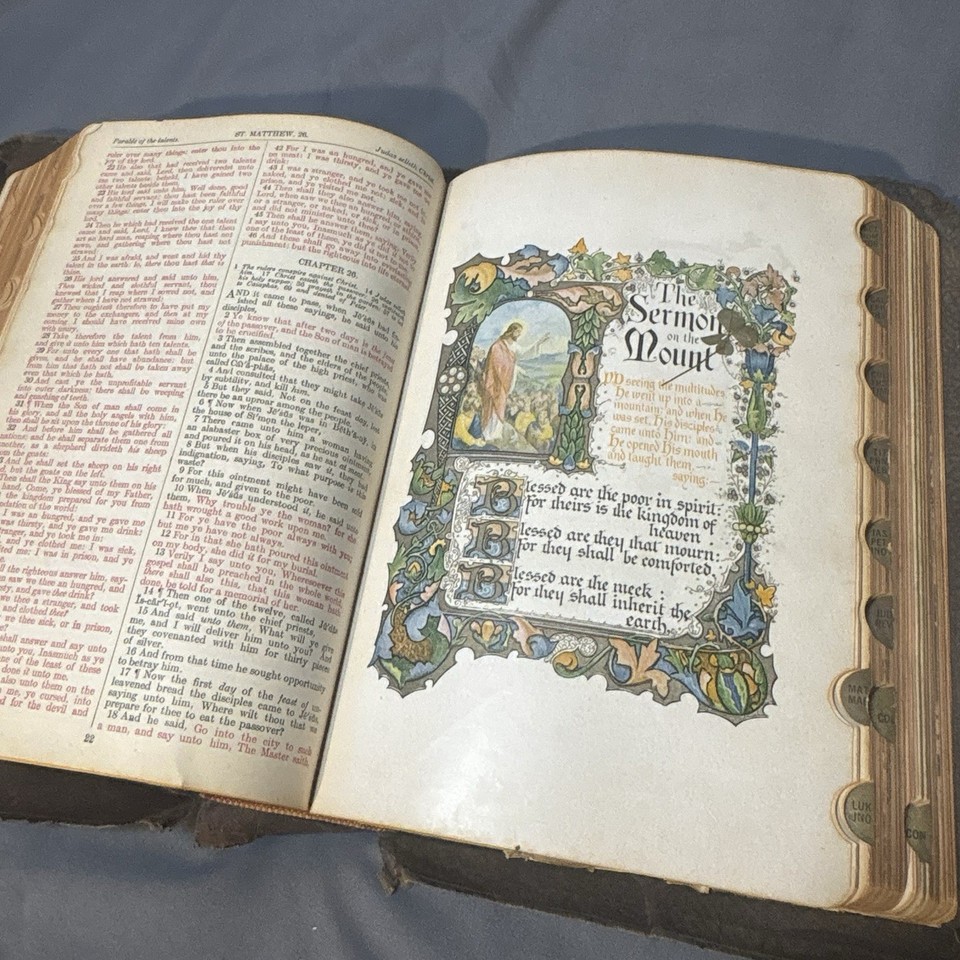 ST. MATTHEW, 26.
Parable of the talents.
ruler over many things: enter thou into the
joy of thy lord.
22 He also that had received two talents
came and said, Lord, thou deliveredst unto
me two talents: behold, I have gained two
other talents beside them.
23 His lord said unto him, Well done, good
and faithful servant; thou hast been faithful
over a few things, I will make thee ruler over
many things: enter thou into the joy of thy
lord.
24 Then he which had received the one talent
came and said, Lord, I knew thee that thou
art an hard man, reaping where thou hast not
sown, and gathering where thou hast not
strawed:
25 And I was afraid, and went and hid thy
talent in the earth: lo, there thou hast that is
thine.
26 His lord answered and said unto him,
Thou wicked and slothful servant, thou
knewest that I reap where I sowed not, and
gather where I have not strawed:
27 Thou oughtest therefore to have put my
money to the exchangers, and then at my
coming I should have received mine own
with usury.
28 Take therefore the talent from him,
and give it unto him which hath ten talents.
29 For unto every one that hath shall be
given, and he shall have abundance: but
from him that hath not shall be taken away
even that which he hath.
30 And cast ye the unprofitable servant
into outer darkness: there shall be weeping
and gnashing of teeth.
31 ¶ When the Son of man shall come in
his glory, and all the holy angels with him,
then shall he sit upon the throne of his glory:
32 And before him shall be gathered all
nations: and he shall separate them one from
another, as a shepherd divideth his sheep
from the goats:
And he shall set the sheep on his right
hand, but the goats on the left.
Then shall the King say unto them on his
hand, Come, ye blessed of my Father,
the kingdom prepared for you from
foundation of the world:
I was an hungred, and ye gave me
was thirsty, and ye gave me drink:
stranger, and ye took me in:
and ye clothed me: I was sick,
visited me: I was in prison, and ye
the righteous answer him, say-
saw we thee an hungred, and
thirsty, and gave thee drink?
we thee a stranger, and took
and clothed thee?
we thee sick, or in prison,
shall answer and say unto
unto you, Inasmuch as ye
one of the least of these
done it unto me.
also unto them on the
me, ye cursed, into
for the devil and
22
42 For I was an hungred, and ye gave
me no meat: I was thirsty, and ye gave me no
drink:
43 I was a stranger, and ye took me not in:
naked, and ye clothed me not: sick, and in
prison, and ye visited me not.
44 Then shall they also answer him, saying,
Lord, when saw we thee an hungred, or athirst,
or a stranger, or naked, or sick, or in prison,
and did not minister unto thee?
45 Then shall he answer them, saying, Verily
I say unto you, Inasmuch as ye did it not to
one of the least of these, ye did it not to me.
46 And these shall go away into everlasting
punishment: but the righteous into life eternal.
CHAPTER 26.
1 The rulers conspire against Christ. 14 Judas selleth
him. 17 Christ eateth the passover:
AND it came to pass, when Jesus had fin-
ished all these sayings, he said unto his
disciples,
2 Ye know that after two days is the feast
of the passover, and the Son of man is betrayed
to be crucified.
3 Then assembled together the chief priests,
and the scribes, and the elders of the people,
unto the palace of the high priest, who was
called Cā'ia-phăs,
4 And consulted that they might take Jē'ṣŭs
by subtilty, and kill him.
5 But they said, Not on the feast day, lest
there be an uproar among the people.
6 ¶ Now when Jē'ṣŭs was in Bĕth'a-nȳ, in
the house of Sī'mon the leper,
7 There came unto him a woman having
an alabaster box of very precious ointment,
and poured it on his head, as he sat at meat.
8 But when his disciples saw it, they had
indignation, saying, To what purpose is this
waste?
9 For this ointment might have been sold
for much, and given to the poor.
10 When Jē'ṣŭs understood it, he said unto
them, Why trouble ye the woman? for she
hath wrought a good work upon me.
11 For ye have the poor always with you;
but me ye have not always.
12 For in that she hath poured this ointment
on my body, she did it for my burial.
13 Verily I say unto you, Wheresoever this
gospel shall be preached in the whole world,
there shall also this, that this woman hath
done, be told for a memorial of her.
14 ¶ Then one of the twelve, called Jū'dăs
Is-căr'ĭ-ot, went unto the chief priests,
15 And said unto them, What will ye give
me, and I will deliver him unto you? And
they covenanted with him for thirty pieces
of silver.
16 And from that time he sought opportunity
to betray him.
17 ¶ Now the first day of the feast of un-
leavened bread the disciples came to Jē'ṣŭs,
saying unto him, Where wilt thou that we
prepare for thee to eat the passover?
18 And he said, Go into the city to such
a man, and say unto him, The Master saith,
The
Sermon
on the
Mount
AND seeing the multitudes,
He went up into a
mountain: and when He
was set, His disciples
came unto Him: and
He opened His mouth
and taught them,
saying:
Blessed are the poor in spirit:
for theirs is the kingdom of
heaven
Blessed are they that mourn:
for they shall be comforted.
Blessed are the meek:
for they shall inherit the
earth.
MAT
MAR
CO
LUK
JNO
CON